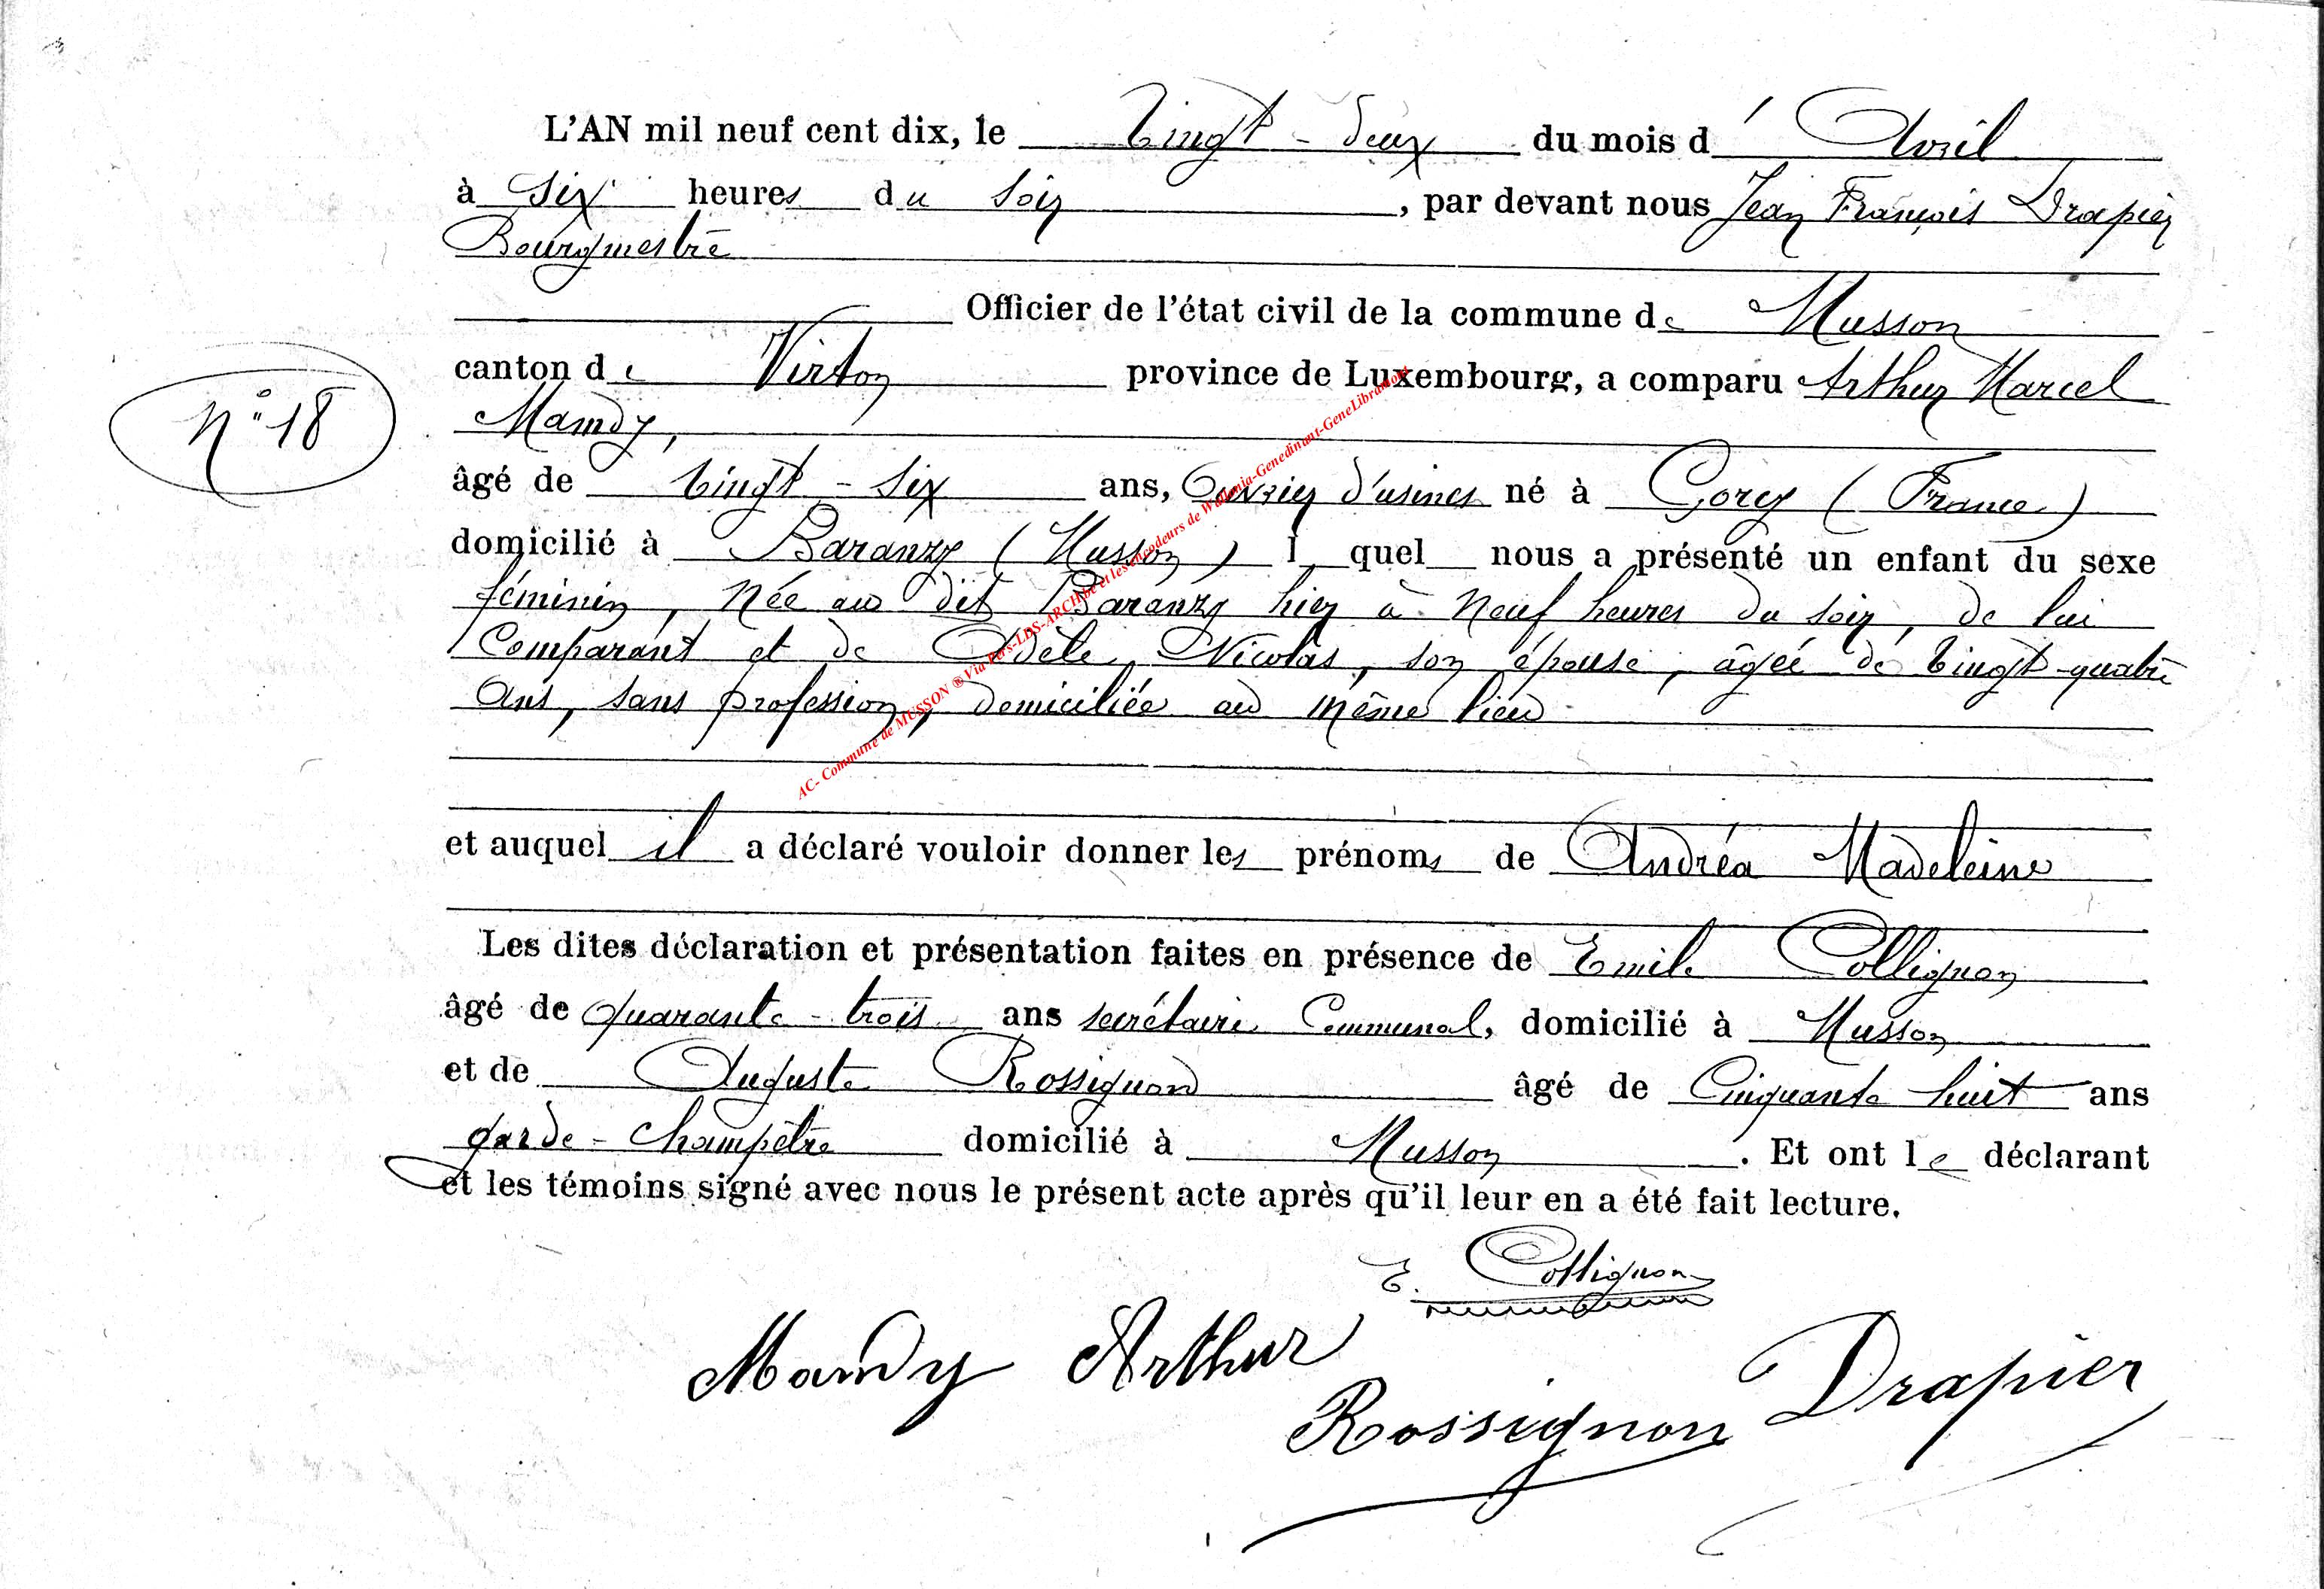 L'AN mil neuf cent dix, le Vingt-deux du mois d'Avril
à Six heures du soir, par devant nous Jean François Drapier
Bourgmestre
Officier de l'état civil de la commune de Musson
canton de Virton province de Luxembourg, a comparu Arthur Marcel
Mamdy,
N° 18
âgé de Vingt-six ans, Ouvrier d'usines né à Gorcy (France)
domicilié à Baranzy (Musson) l quel nous a présenté un enfant du sexe
féminin, Née au dit Baranzy hier à Neuf heures du soir, de lui
Comparant et de Adèle Nicolas, son épouse, âgée de Vingt-quatre
Ans, sans profession, domiciliée au même lieu
et auquel il a déclaré vouloir donner les prénoms de Andréa Madeleine
Les dites déclaration et présentation faites en présence de Emile Collignon
âgé de Quarante-trois ans secrétaire Communal, domicilié à Musson
et de Auguste Rossignon âgé de Cinquante huit ans
garde-Champêtre domicilié à Musson. Et ont le déclarant
et les témoins signé avec nous le présent acte après qu'il leur en a été fait lecture.
E. Collignon
Mamdy Arthur
Rossignon Drapier
AC- Commune de MUSSON ® Via Pers-LDS-ARCH.be et les encodeurs de Wallonia-Genedinant-GeneLibramont